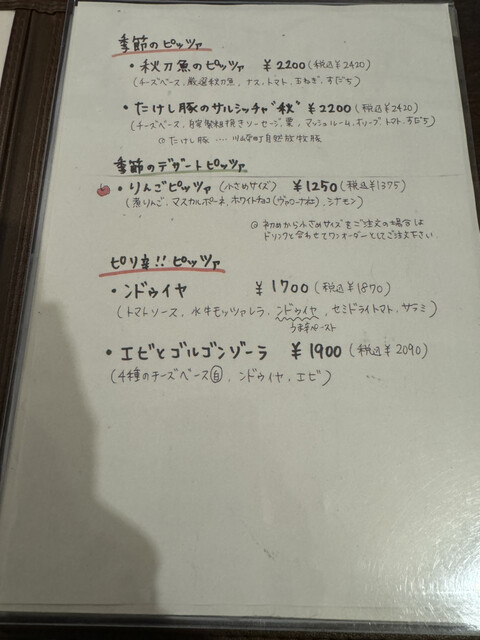 季節のピッツァ
・秋刀魚のピッツァ ¥2200(税込¥2420)
(チーズベース、厳選秋刀魚、ナス、トマト、玉ねぎ、すだち)
・たけし豚のサルシッチャ"秋" ¥2200(税込¥2420)
(チーズベース、自家製粗挽きソーセージ、栗、マッシュルーム、オリーブ、トマト、すだち)
◎たけし豚 .... 自然放牧豚
季節のデザートピッツァ
・りんごピッツァ (小さめサイズ) ¥1250(税込¥1375)
(煮りんご、マスカルポーネ、ホワイトチョコ(ヴァローナ社)、シナモン)
◎初めから小さめサイズをご注文の場合は
ドリンクと合わせてワンオーダーとしてご注文下さい
ピリ辛!!ピッツァ
・ンドゥイヤ ¥1700(税込¥1870)
(トマトソース、水牛モッツァレラ、ンドゥイヤ、セミドライトマト、サラミ)
うま辛ペースト
・エビとゴルゴンゾーラ ¥1900(税込¥2090)
(4種のチーズベース白、ンドゥイヤ、エビ)